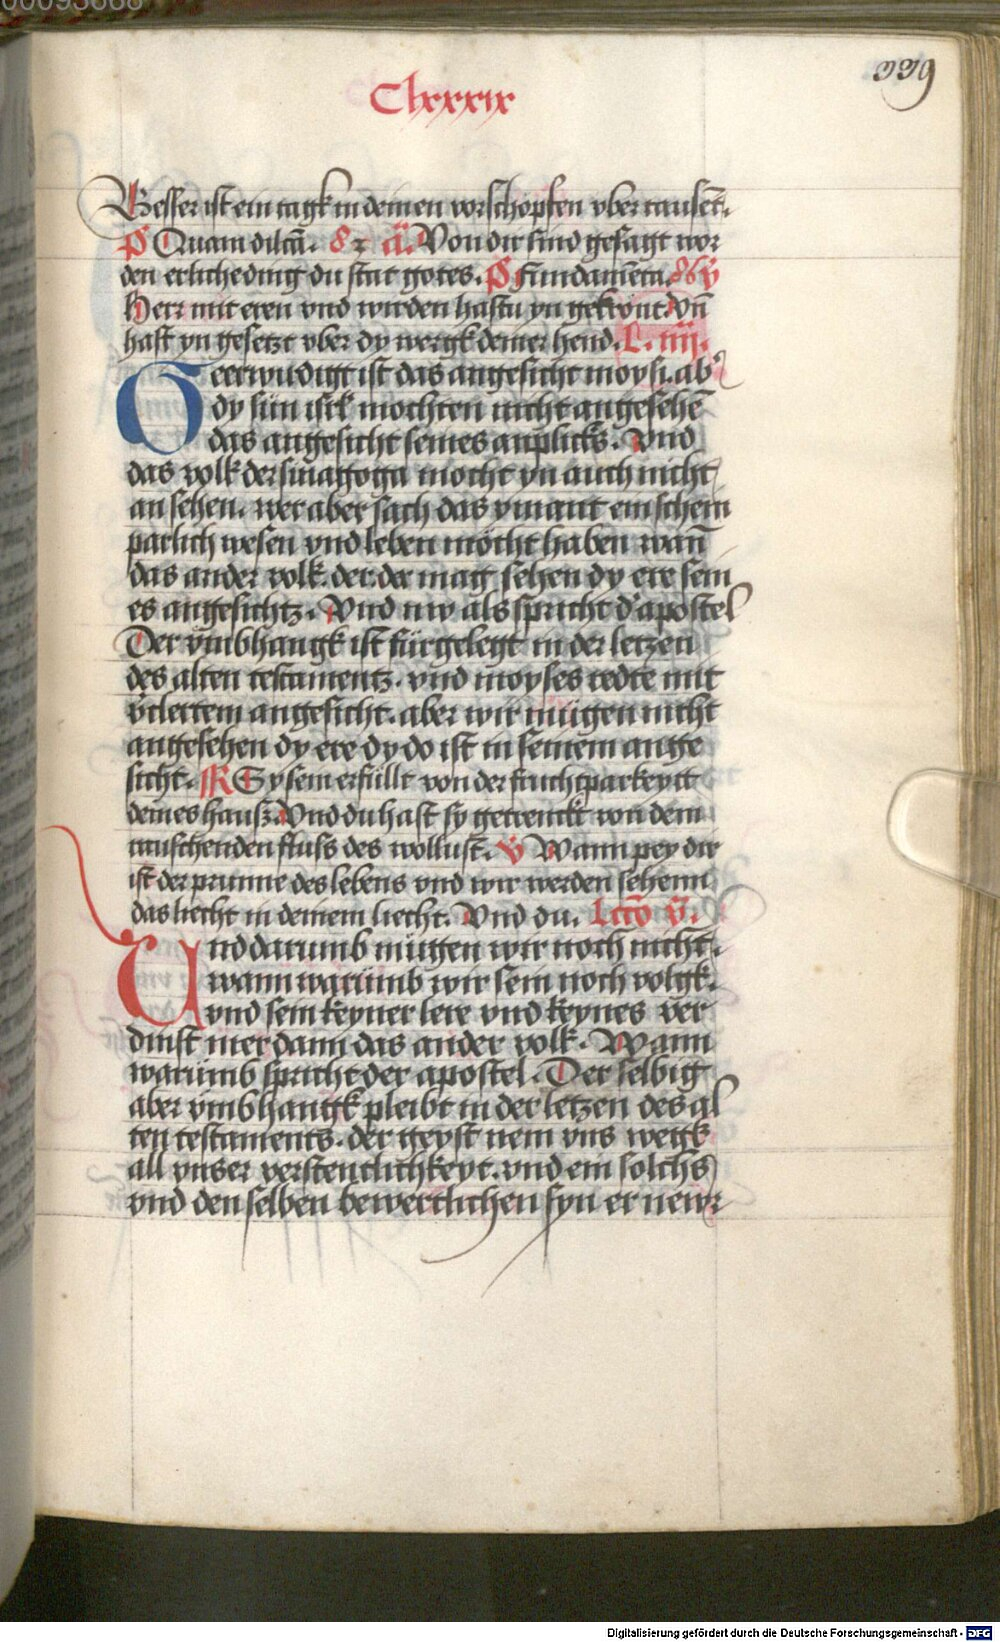 00093668
339
Clxxxix
Besser ist ein tagk in deinen vorschopfen vber tausēt.
P̄ Quam dilcā. 82 ā. Von dir sind gesagt wor
den erlichedinng du stat gotes. P̄ Fundamēta. 86 v̄
Herr mit eren vnd wirden hastu yn gekrönt. Vn̄
hast yn gesetzt vber dy wergk deiner hend. L. iiij.
Geerwirdigt ist das angesicht moysi. ab
dy sün isrl̄ mochten nicht angesehē
das angesicht seines anplicks. Vnd
das volk der sinagoga mocht yn auch nicht
an sehen. wer aber sach das ymant ein schein
parlich wesen vnd leben möcht haben wan̄
das ander volk. der. der mag sehen dy ere sein
es angesichtz. Vnd nw als spricht d' apostel
Der vmbhangk ist fürgelegt in der letzen
des alten testamentz. vnd moyses redte mit
v̄clertem angesicht. aber wir mügen nicht
angesehen dy ere dy do ist in seinem ange
sicht. R Sy sein erfüllt von der fruchtparkeytt
deines hausz. Vnd du hast sy getrenckt von dem
rauschenden fluss des wollust. v̄ Wann pey dir
ist der prunne des lebens vnd wir werden sehenn
das liecht in deinem liecht. Vnd du. Lccō v̄.
Und darumb mügen wir noch nicht.
wann warümb wir sein noch volgk.
vnd sein keyner lere vnd keynes ver
dinst mer dann das ander volk. Wann
warümb spricht der apostel. Der selbig
aber vmbhangk pleibt in der letzen des al
ten testaments. der geyst nem vns wegk
all vnser verstentlichkeyt. vnd ein solchs
vnd den selben bewertlichen syn er newr
Digitalisierung gefördert durch die Deutsche Forschungsgemeinschaft - DFG